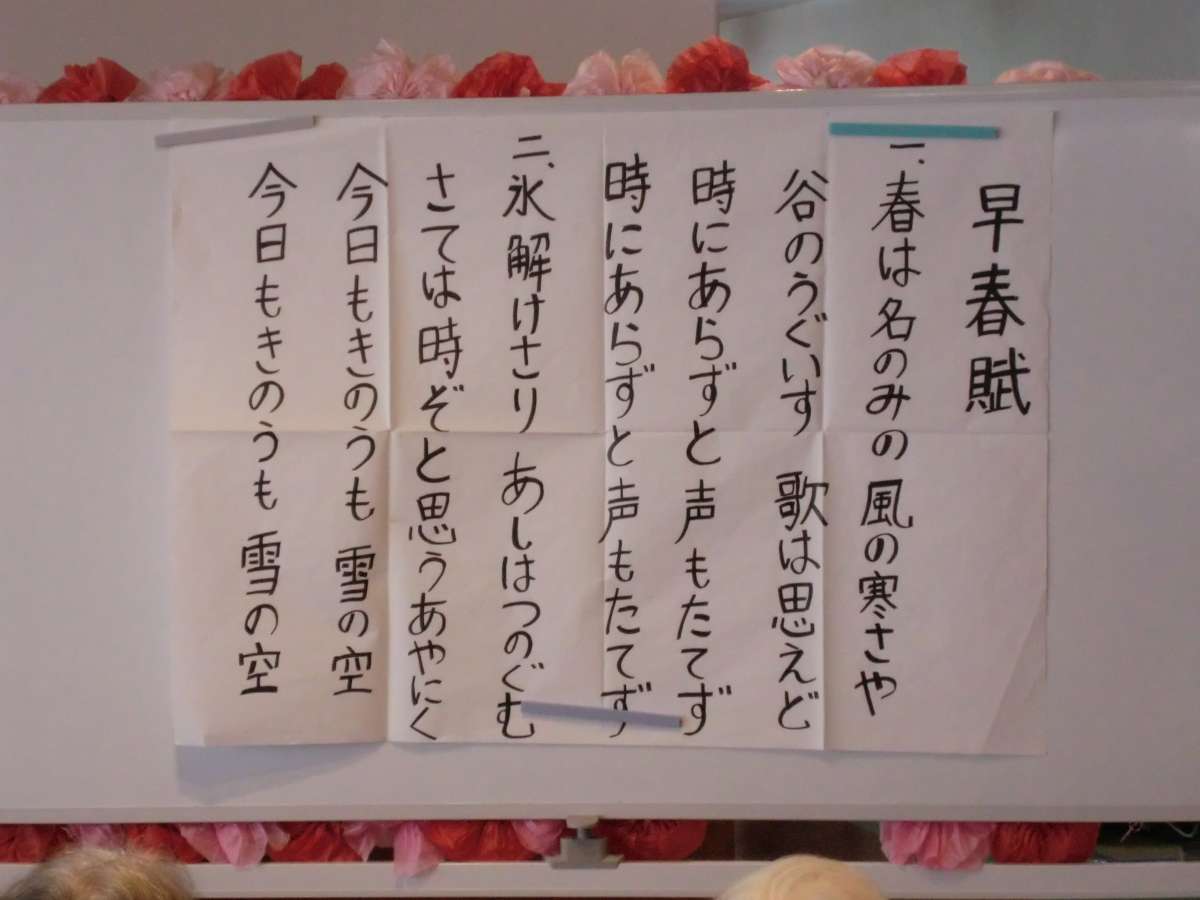 早春賦
一、春は名のみの 風の寒さや
谷のうぐいす 歌は思えど
時にあらずと 声もたてず
時にあらずと 声もたてず
二、氷解けさり あしはつのぐむ
さては時ぞと 思うあやにく
今日もきのうも 雪の空
今日もきのうも 雪の空